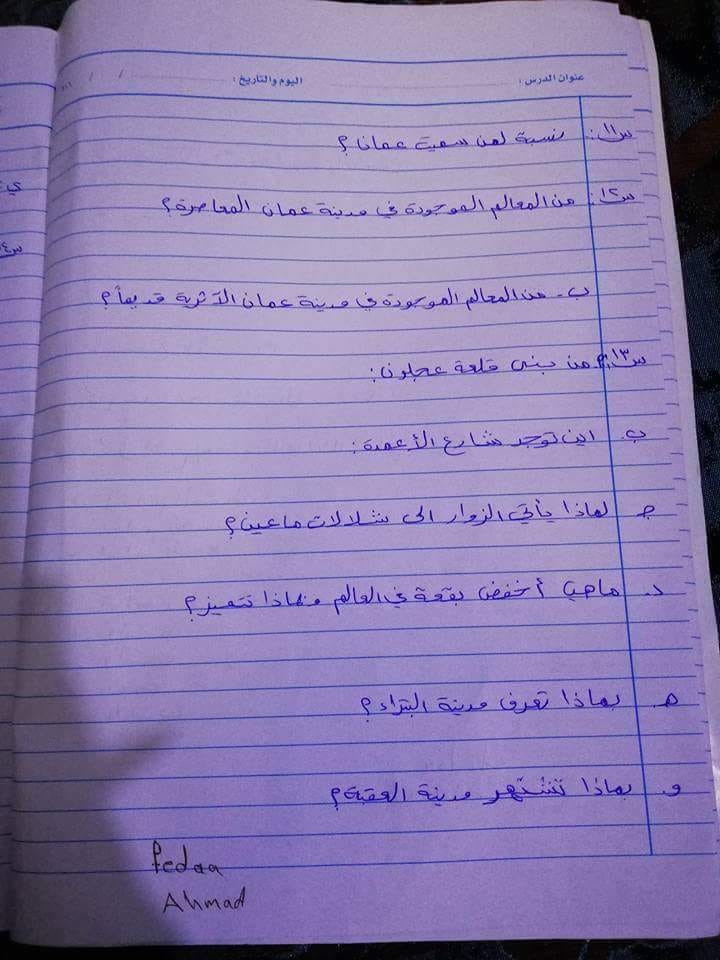 عنوان الدرس: اليوم والتاريخ: / /
س١١: نسبة لمن سميت عمان؟
س١٢: من المعالم الموجودة في مدينة عمان المعاصرة؟
ب- من المعالم الموجودة في مدينة عمان الآثرية قديماً؟
س١٣: من بنى قلعة عجلون:
ب. اين توجد شارع الأعمدة:
ج لماذا يأتي الزوار الى شلالات ماعين؟
د. ماهي أخفض بقعة في العالم وبماذا تتميز؟
هـ بماذا تعرف مدينة البتراء؟
و. بماذا تشتهر مدينة العقبة؟
Fedaa
Ahmad